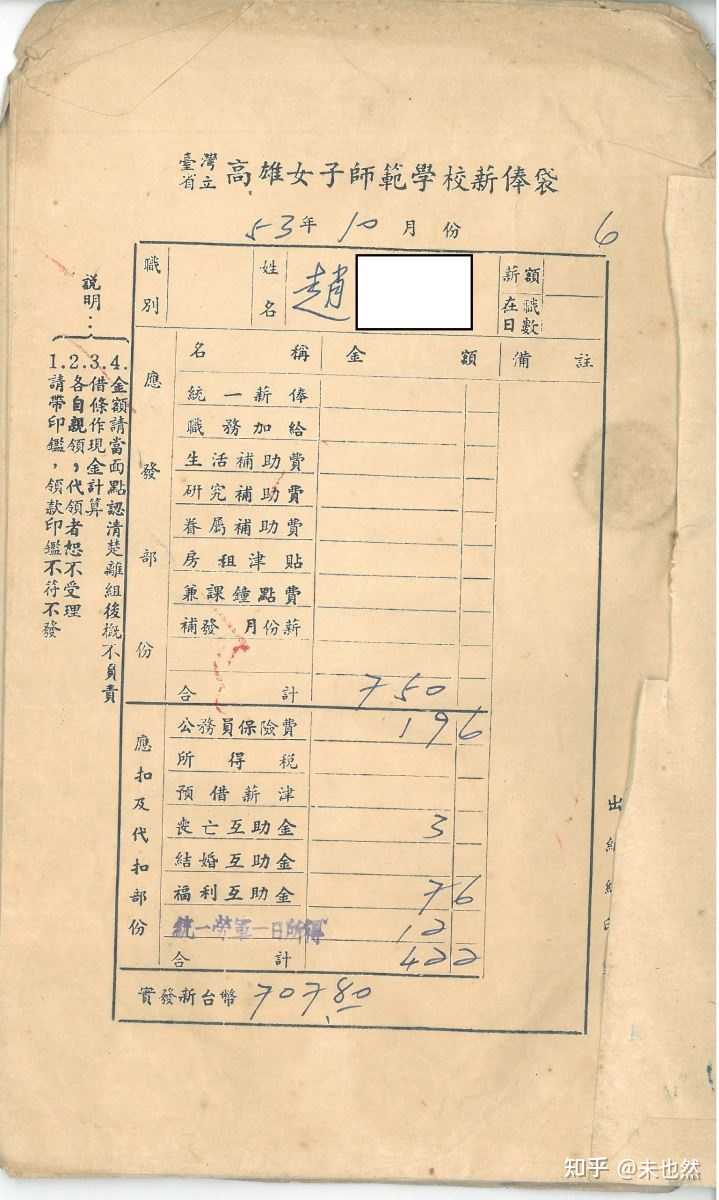 臺灣省立高雄女子師範學校薪俸袋
53年10月份 6
職別 姓名 趙 薪額 在職日數
應發部份
名稱 金額 備註
統一薪俸
職務加給
生活補助費
研究補助費
眷屬補助費
房租津貼
兼課鐘點費
補發 月份薪
合計 750
應扣及代扣部份
公務員保險費 19 6
所得稅
預借薪津
喪亡互助金 3
結婚互助金
福利互助金 7 6
統一勞軍一日所得 12
合計 42 2
實發新台幣 707.80
說明：
1.請帶印鑑，領款印鑑不符不發
2.各自親領，代領者恕不受理
3.借條作現金計算
4.金額請當面點認清楚離組後概不負責
出
知乎 @未也然